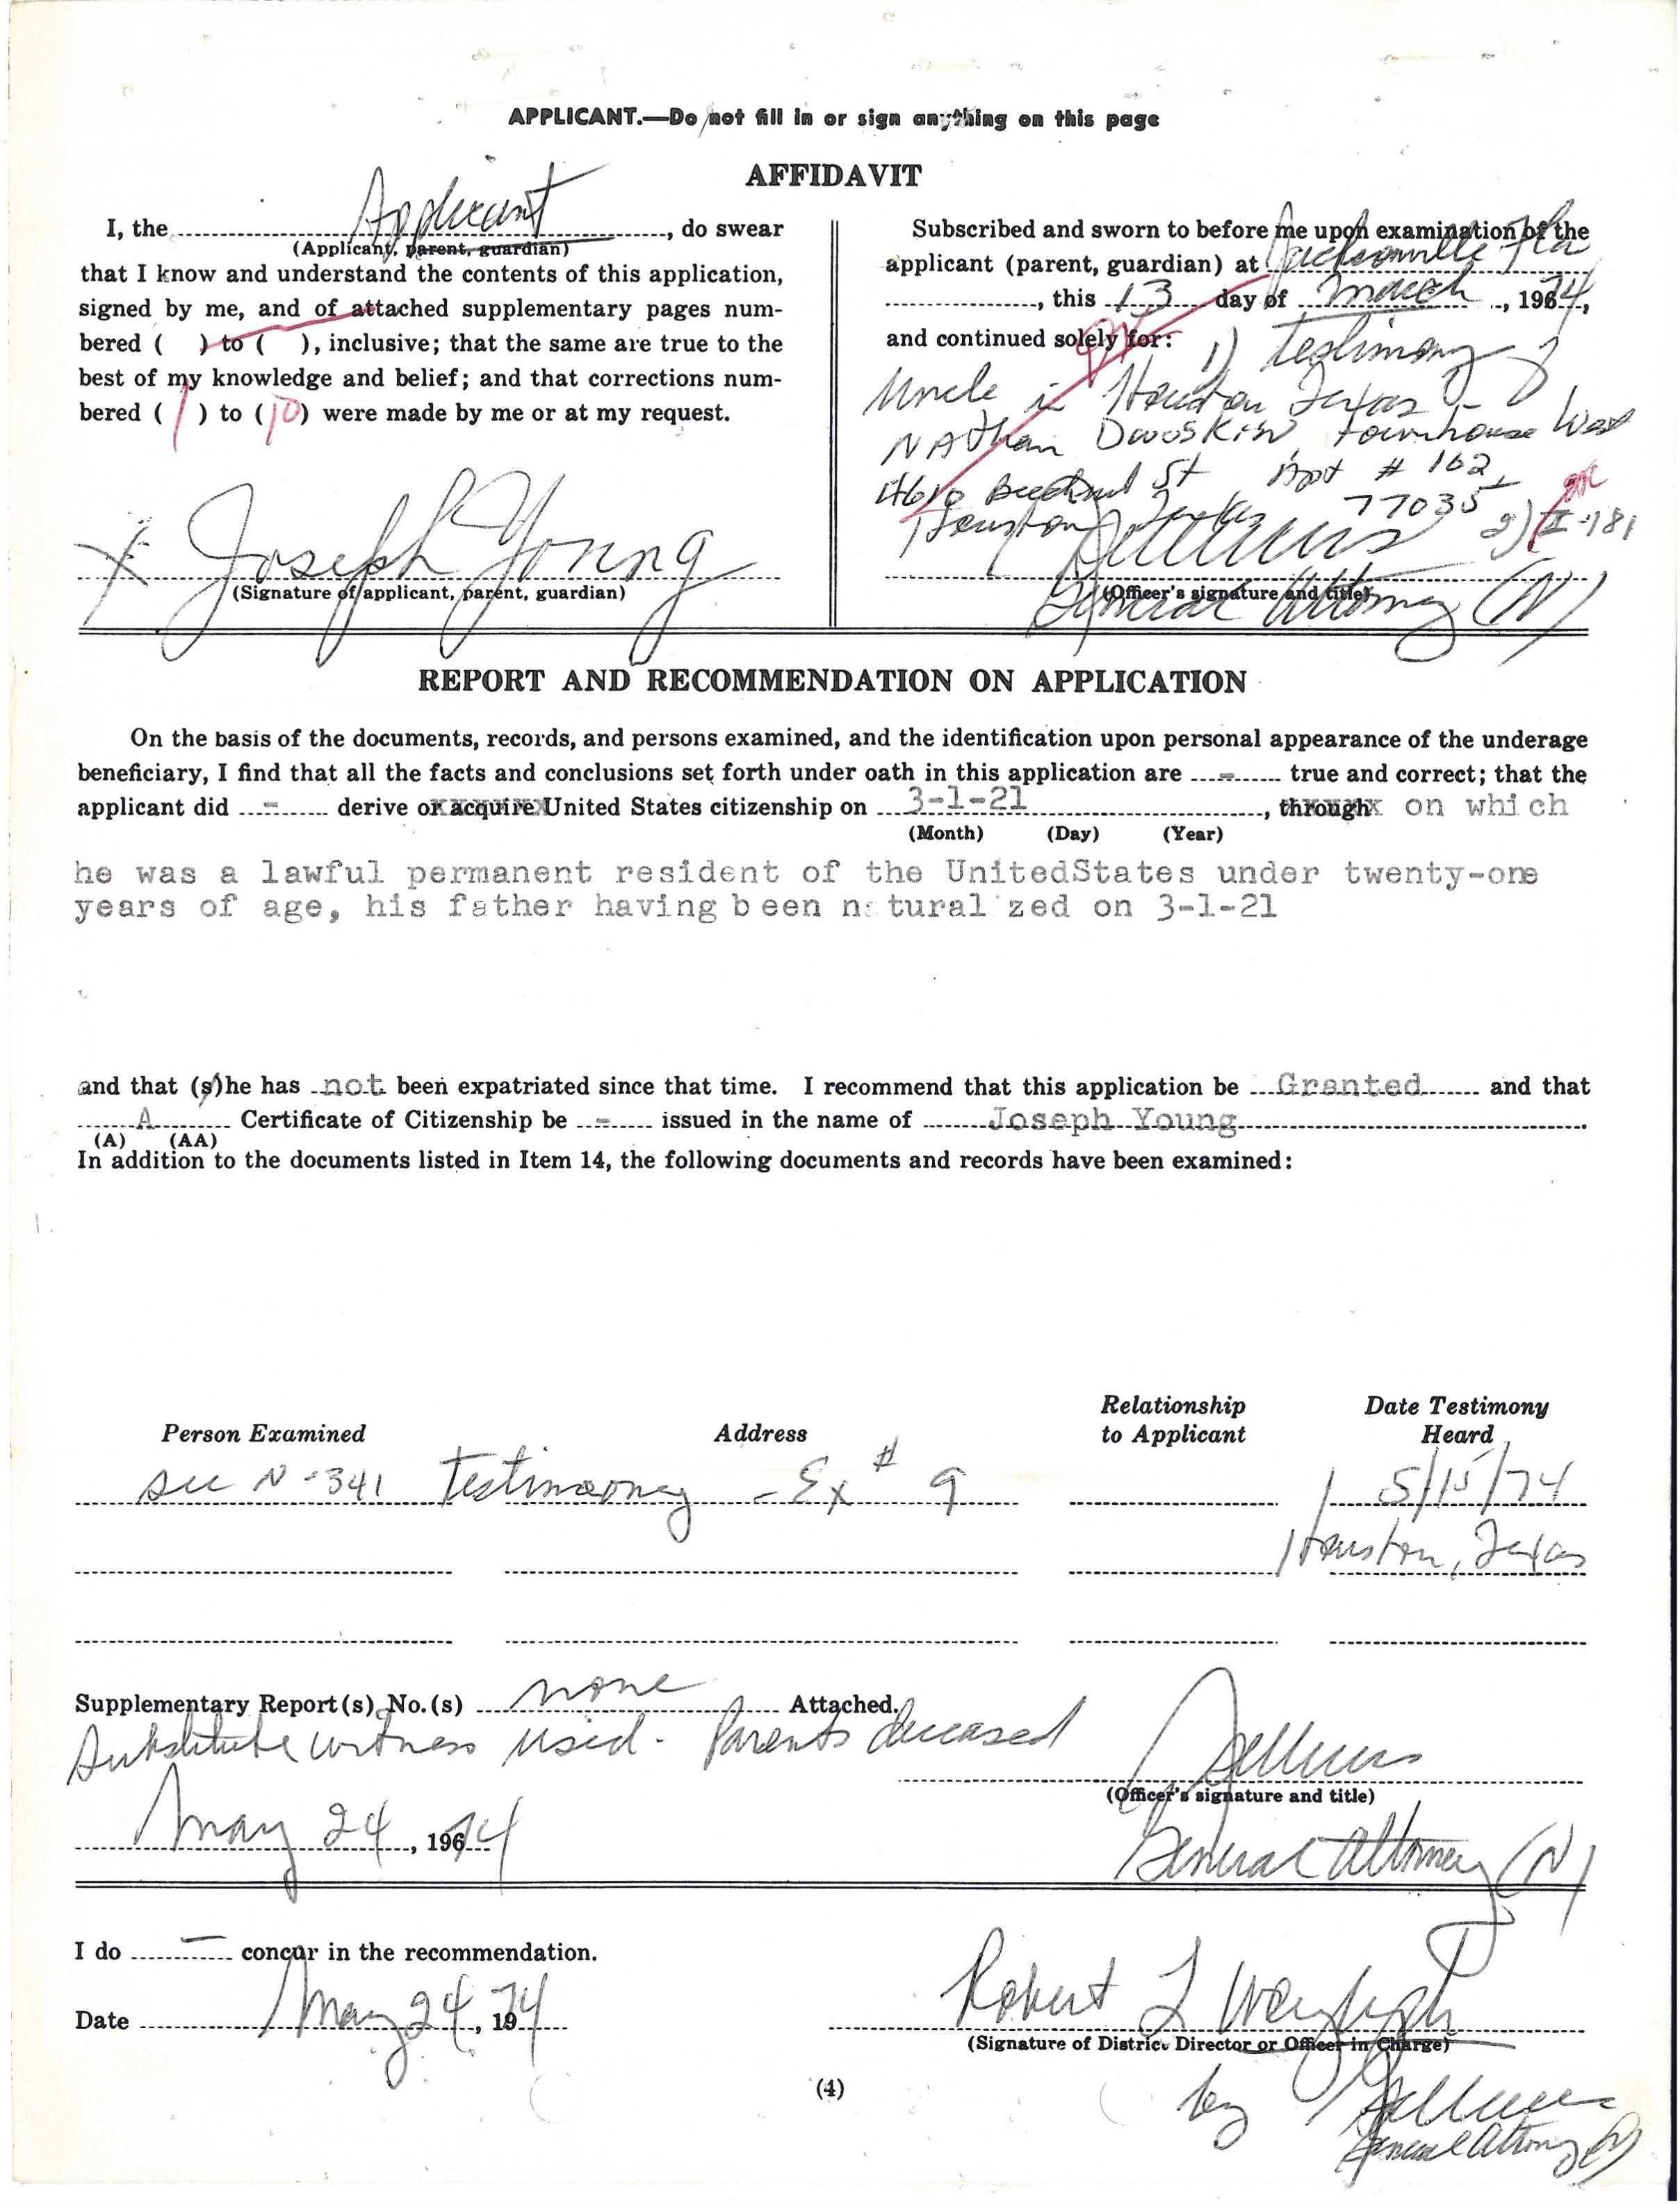 APPLICANT.—Do not fill in or sign anything on this page
AFFIDAVIT
I, the Applicant, do swear
(Applicant, parent, guardian)
that I know and understand the contents of this application,
signed by me, and of attached supplementary pages num-
bered ( ) to ( ), inclusive; that the same are true to the
best of my knowledge and belief; and that corrections num-
bered ( 1 ) to (10) were made by me or at my request.
X Joseph Young
(Signature of applicant, parent, guardian)
Subscribed and sworn to before me upon examination of the
applicant (parent, guardian) at Jacksonville Fla
, this 13 day of March, 1974,
and continued solely for: 1) testimony of
Uncle in Houston Texas -
NAthan DwosKiN Townhouse West
4610 St Apt # 162
Houston Texas 77035 2) I-181
(Officer's signature and title)
General Attorney (N)
REPORT AND RECOMMENDATION ON APPLICATION
On the basis of the documents, records, and persons examined, and the identification upon personal appearance of the underage
beneficiary, I find that all the facts and conclusions set forth under oath in this application are - true and correct; that the
applicant did - derive or acquire United States citizenship on 3-1-21, through on which
(Month) (Day) (Year)
he was a lawful permanent resident of the UnitedStates under twenty-one
years of age, his father having been naturalized on 3-1-21
and that (s)he has not been expatriated since that time. I recommend that this application be Granted and that
A Certificate of Citizenship be - issued in the name of Joseph Young.
(A) (AA)
In addition to the documents listed in Item 14, the following documents and records have been examined:
Person Examined Address Relationship to Applicant Date Testimony Heard
see N-341 testimony - Ex # 9 5/15/74
Houston, Texas
Supplementary Report(s) No.(s) none Attached.
Substitute witness used. Parents deceased
(Officer's signature and title)
May 24, 1974
General Attorney (N)
I do - concur in the recommendation.
Date May 24, 1974
Robert L
(Signature of District Director or Officer in Charge)
(4)
by
General Attorney (N)